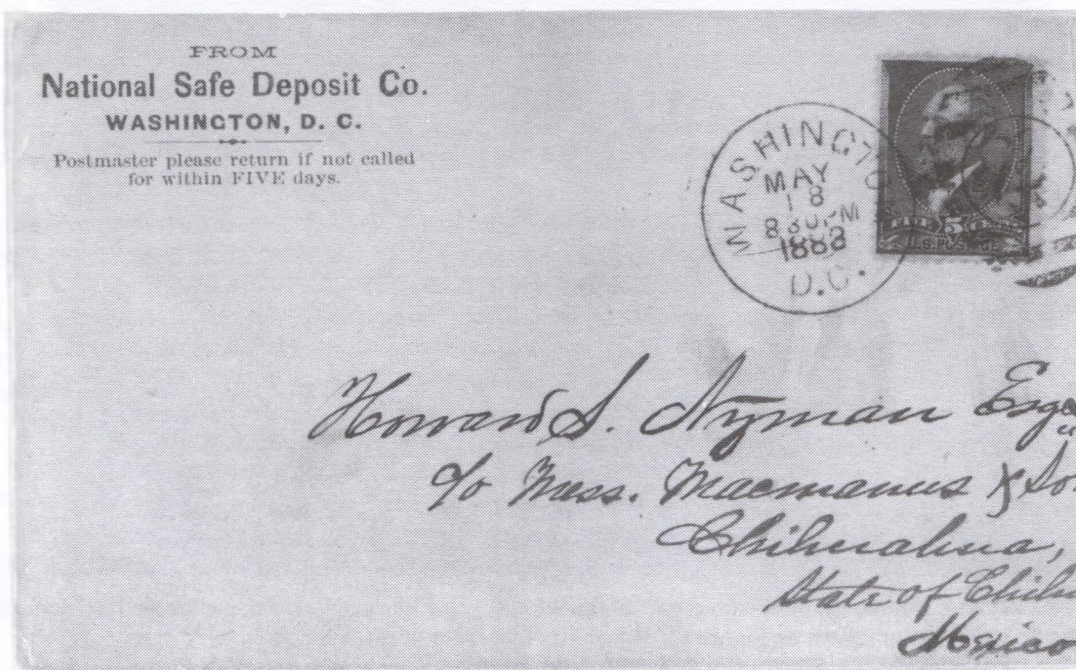 FROM
National Safe Deposit Co.
WASHINGTON, D. C.
Postmaster please return if not called
for within FIVE days.
WASHINGTO
MAY
18
830PM
1888
D.C.
FIVE 5 CENTS
U.S. POSTAGE
Howard S. Nyman Esqr
c/o Mess. Macmanus & So
Chihuahua,
State of Chihu
Mexico